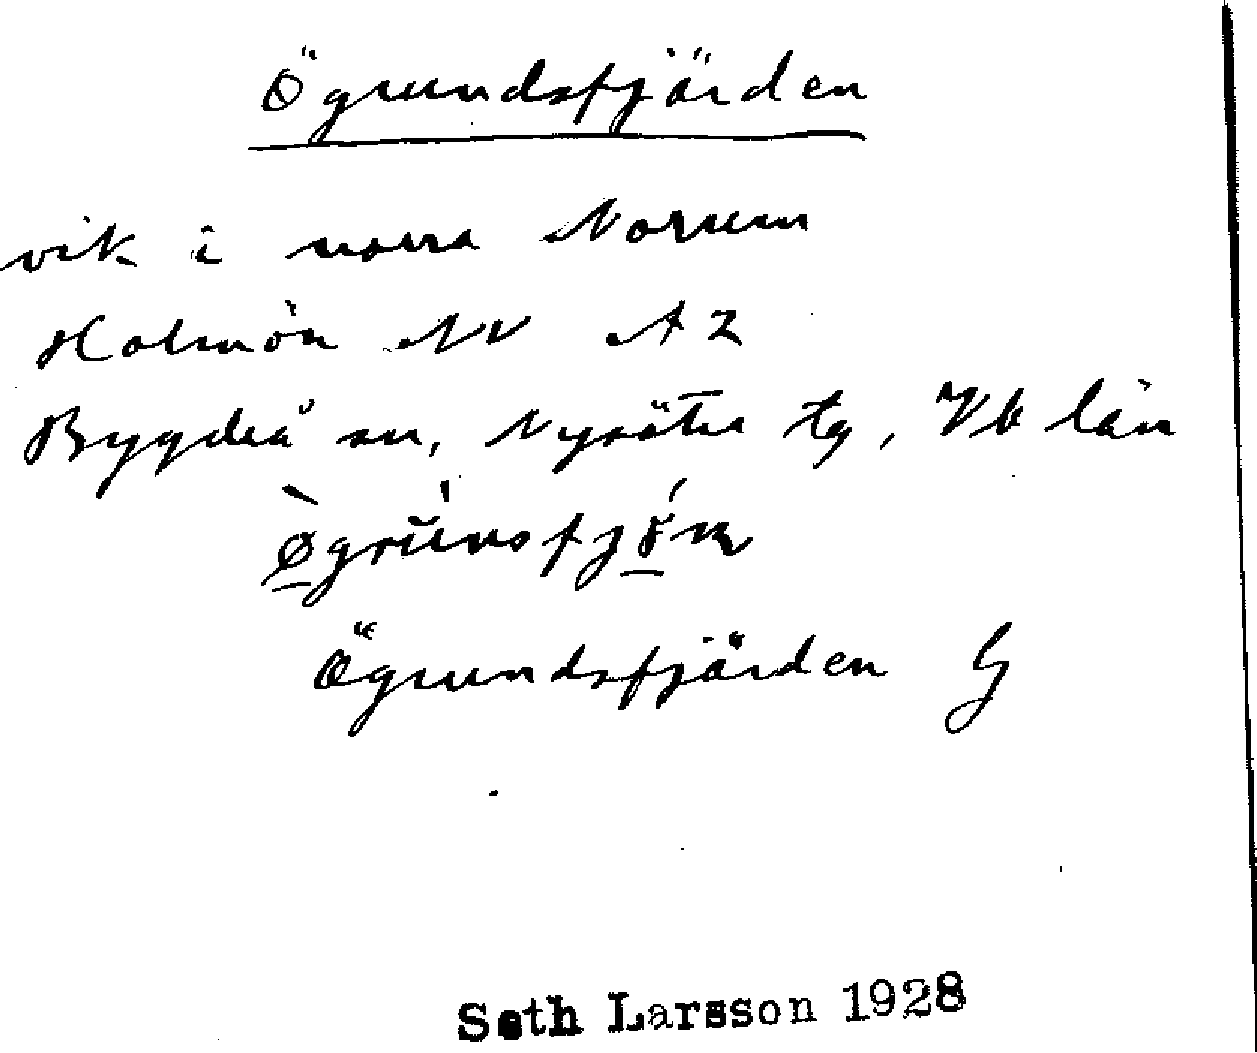 Ögrundsfjärden
vik i norra Norum
Holmön NV A2
Bygdeå sn, Nysätra tg, Vb län
Ögrundsfjärden G
Seth Larsson 1928